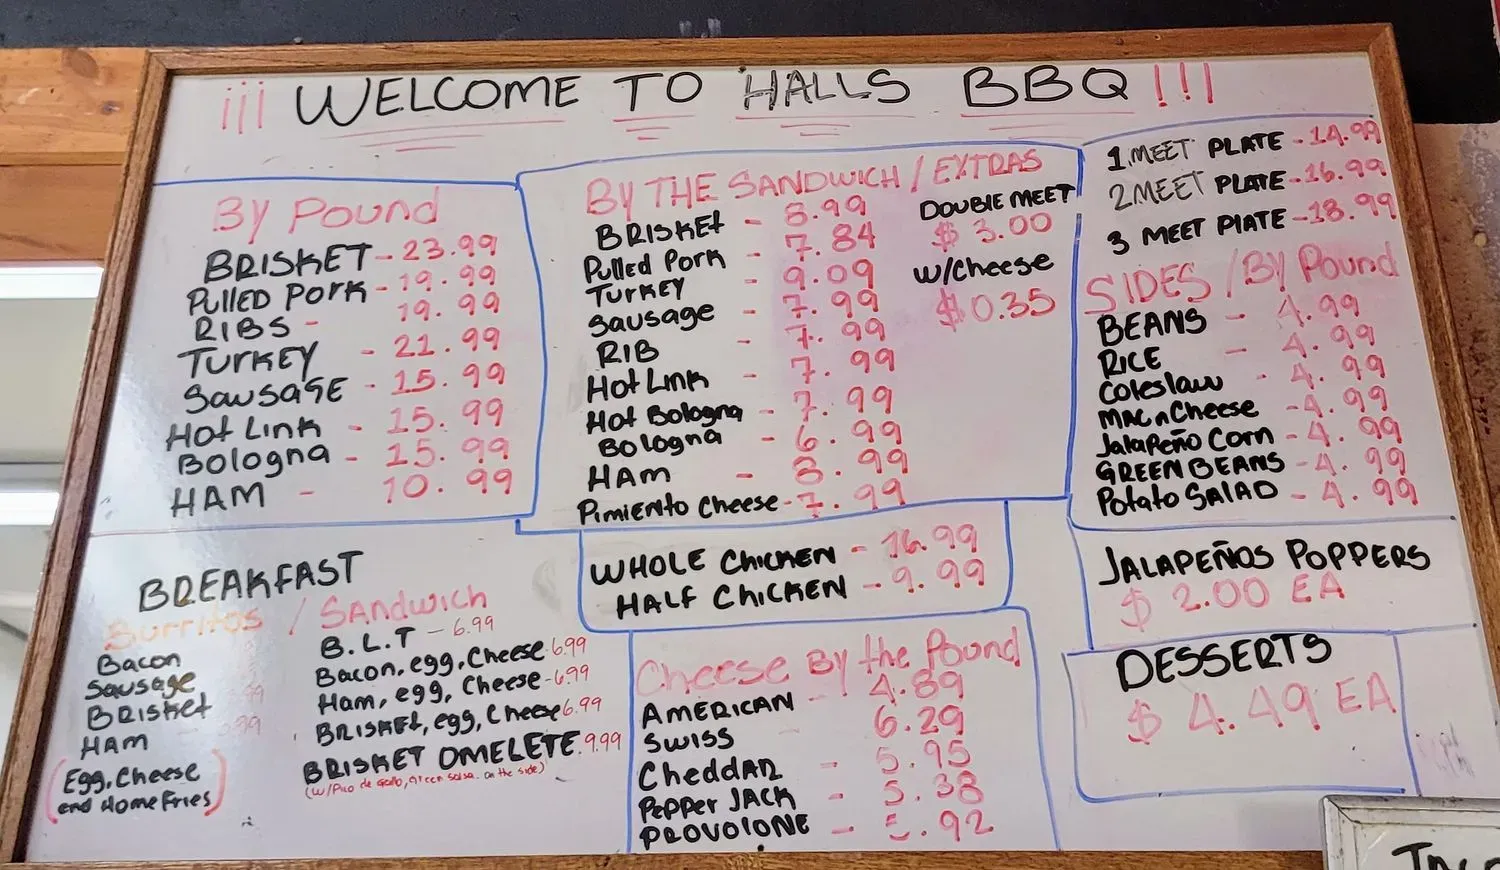 ¡¡¡ WELCOME TO HALLS BBQ !!!
By Pound
BRISKET - 23.99
PULLED PORK - 19.99
RIBS - 19.99
TURKEY - 21.99
SAUSAGE - 15.99
Hot Link - 15.99
Bologna - 15.99
HAM - 10.99
BY THE SANDWICH / EXTRAS
BRISKET - 8.99
Pulled Pork - 7.84
TURKEY - 9.09
Sausage - 7.99
RIB - 7.99
Hot Link - 7.99
Hot Bologna - 7.99
Bologna - 6.99
HAM - 8.99
Pimiento Cheese - 7.99
DOUBLE MEET
$ 3.00
w/Cheese
$0.35
1 MEET PLATE - 14.99
2 MEET PLATE - 16.99
3 MEET PLATE - 18.99
SIDES / By Pound
BEANS - 4.99
RICE - 4.99
Coleslaw - 4.99
MAC n Cheese - 4.99
Jalapeño Corn - 4.99
GREEN BEANS - 4.99
Potato SALAD - 4.99
WHOLE CHICKEN - 16.99
HALF CHICKEN - 9.99
JALAPEÑOS POPPERS
$ 2.00 EA
DESSERTS
$ 4.49 EA
BREAKFAST
Burritos / Sandwich
Bacon
Sausage
BRISKET
HAM
(Egg, Cheese
and Home Fries)
B.L.T - 6.99
Bacon, egg, Cheese 6.99
Ham, egg, Cheese - 6.99
BRISKET, egg, Cheese 6.99
BRISKET OMELETE 9.99
(w/Pico de Gallo, green salsa. on the side)
Cheese By the Pound
AMERICAN - 4.89
SWISS - 6.29
CHEDDAR - 5.95
Pepper JACK - 5.38
PROVOLONE - .92